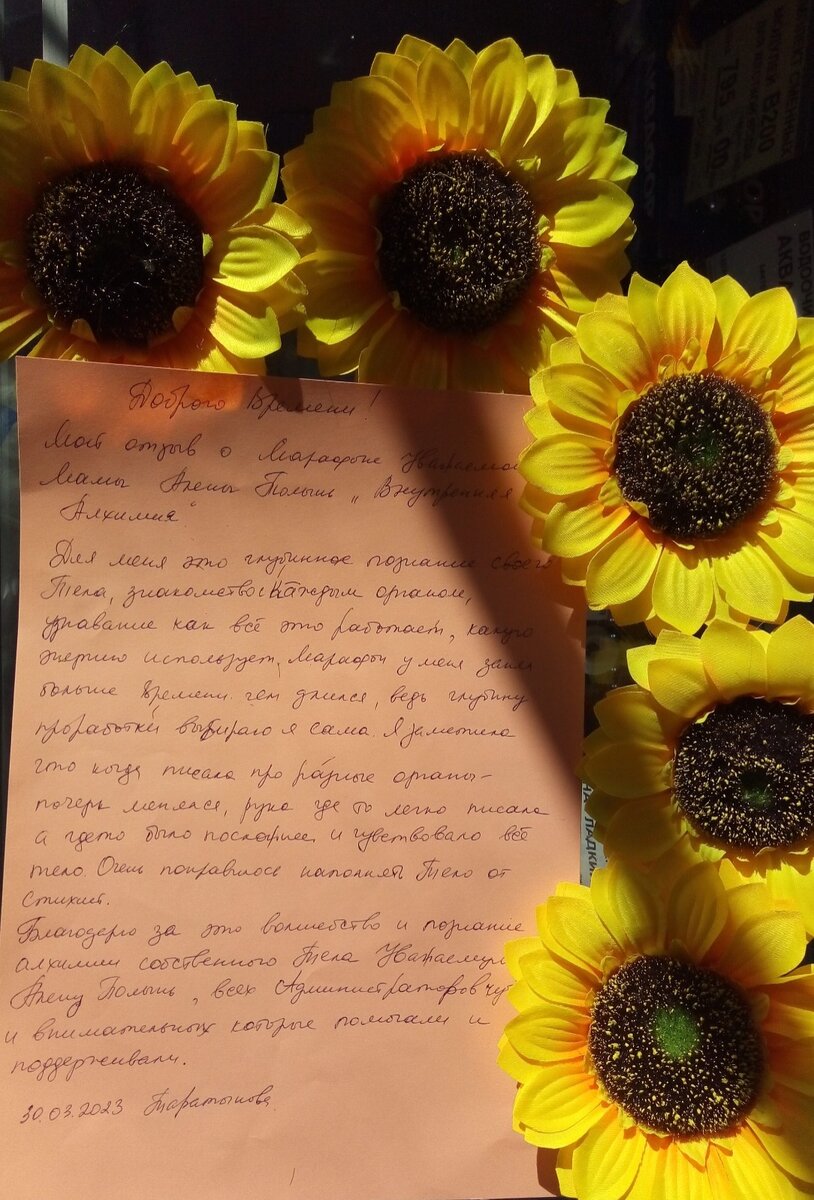 Доброго Времени!
Мой отзыв о Марафоне Уважаемой
Мамы Алены Полынь „Внутренняя
Алхимия"
Для меня это глубинное познание своего
Тела, знакомство с Каждым органом,
узнавание как всё это работает, какую
энергию использует. Марафон у меня занял
больше времени чем длился, ведь глубину
проработки выбираю я сама. Я заметила
что когда писала про разные органы-
почерк менялся, рука где то легко писала
а где то было посложнее и чувствовало всё
тело. Очень понравилось наполнять Тело от
стихий.
Благодарю за это волшебство и познание
алхимии собственного Тела Уважаемую
Алену Полынь, всех Администраторов
и внимательных которые помогали и
поддерживали.
30.03.2023
АКВА
НА ЛАДКИ
B200
795
00